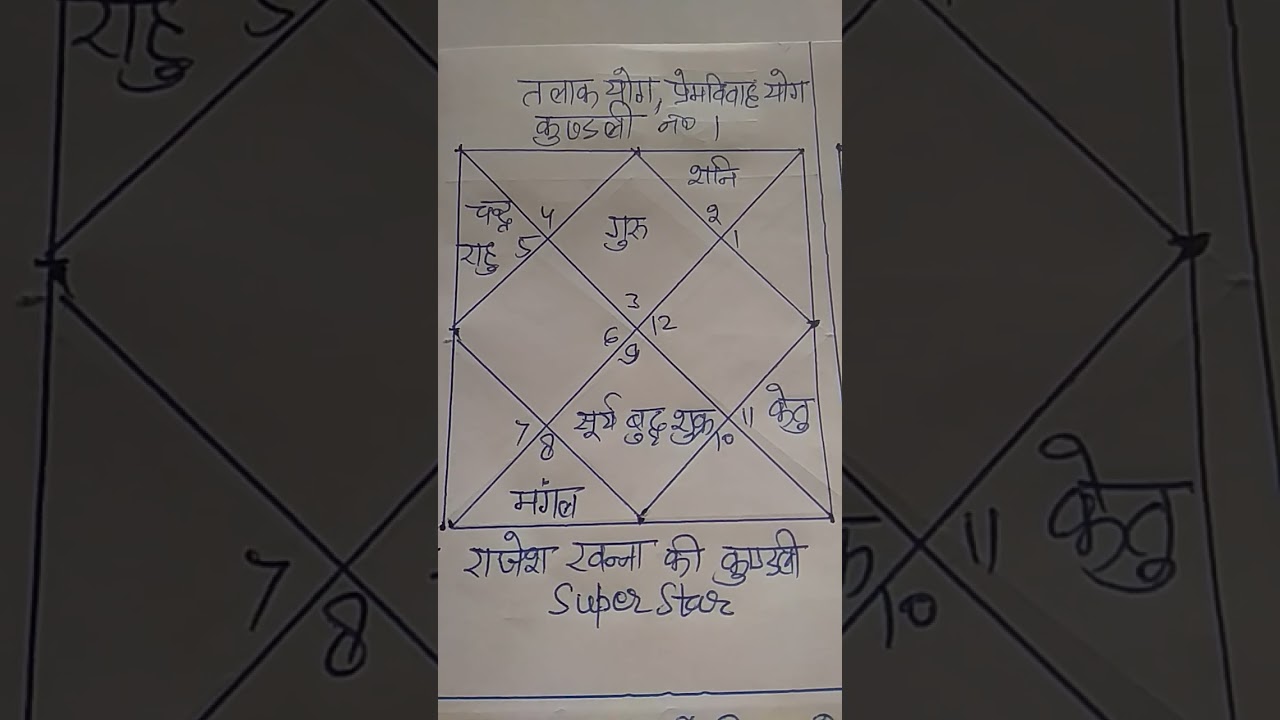 तलाक योग, प्रेमविवाह योग
कुण्डली नं० 1
शनि
चन्द्र 4 गुरु 2
राहु 5 1
3
6 12
9
7 सूर्य बुद्ध शुक्र 11 केतु
8 10
मंगल
राजेश खन्ना की कुण्डली
Super Star